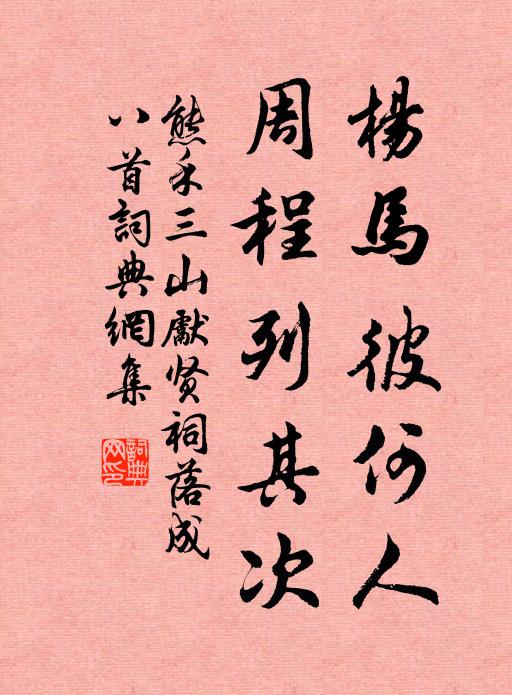 楊馬彼何人
周程列其次
熊禾三山獻贤祠落成
八首詞典網集
詞典网印